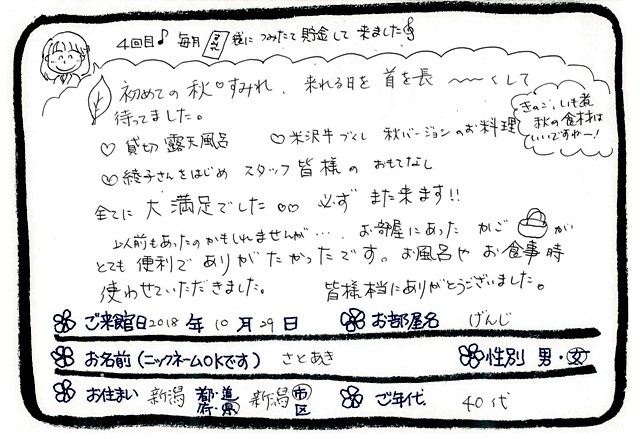 4回目♪ 毎月 袋に つみたて貯金して 来ました
初めての 秋♡すみれ、来れる日を 首を長〜〜〜くして
待ってました。
♡ 貸切 露天風呂 ♡ 米沢牛づくし 秋バージョンのお料理
きのこ、いも煮
秋の食材は
いいですねー!
♡ 綾子さんをはじめ スタッフ皆様の おもてなし
全てに 大満足でした♡♡ 必ず また来ます!!
以前もあったのかもしれませんが…、お部屋にあった かご が
とても 便利で ありがたかったです。お風呂や お食事時
使わせていただきました。 皆様本当にありがとうございました。
ご来館日 2018 年 10 月 29 日 お部屋名 げんじ
お名前(ニックネームOKです) さとあき 性別 男・女
お住まい 新潟 都・道・府・県 新潟 市 区 ご年代 40代